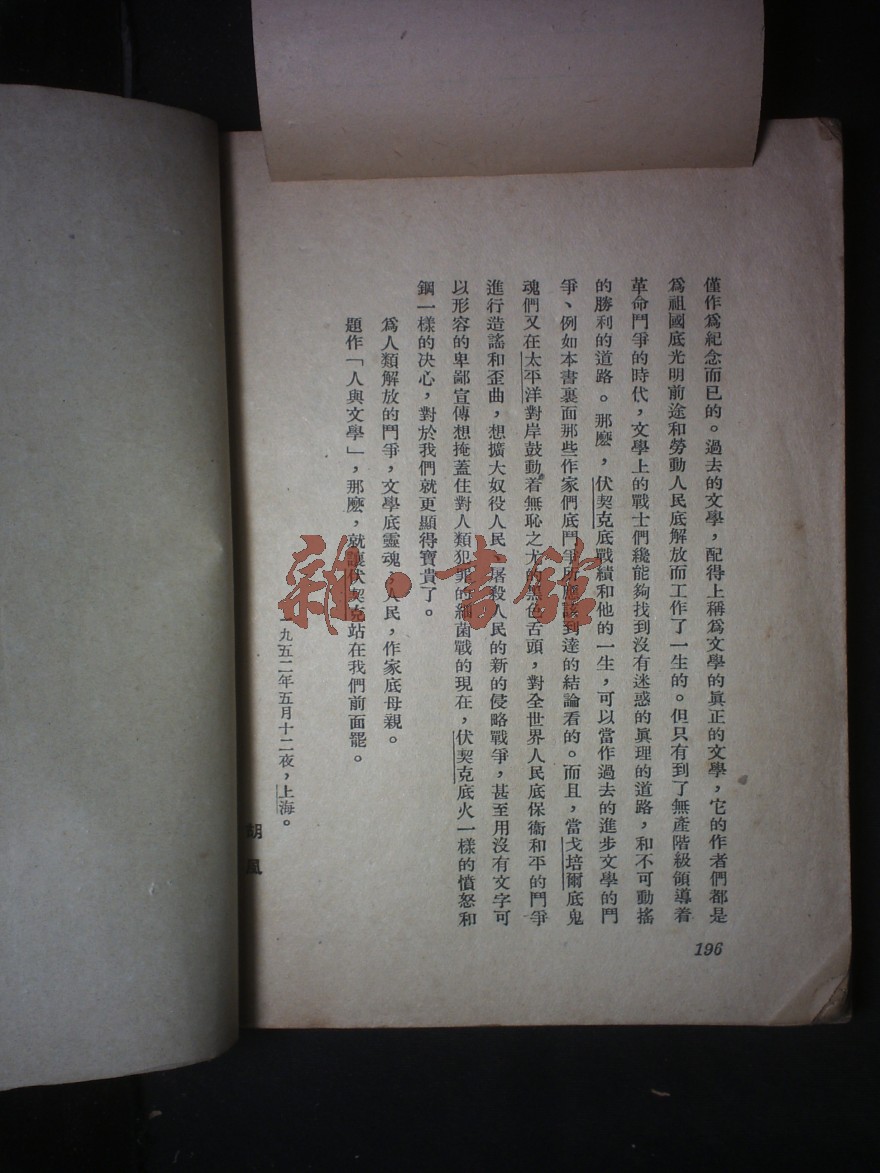 僅作爲紀念而已的。過去的文學，配得上稱爲文學的眞正的文學，它的作者們都是
爲祖國底光明前途和勞動人民底解放而工作了一生的。但只有到了無產階級領導着
革命鬥爭的時代，文學上的戰士們纔能夠找到沒有迷惑的眞理的道路，和不可動搖
的勝利的道路。那麽，伏契克底戰績和他的一生，可以當作過去的進步文學的鬥
爭、例如本書裏面那些作家們底鬥爭所應該到達的結論看的。而且，當戈培爾底鬼
魂們又在太平洋對岸鼓動着無恥之尤的黑色舌頭，對全世界人民底保衞和平的鬥爭
進行造謠和歪曲，想擴大奴役人民、屠殺人民的新的侵略戰爭，甚至用沒有文字可
以形容的卑鄙宣傳想掩蓋住對人類犯罪的細菌戰的現在，伏契克底火一樣的憤怒和
鋼一樣的决心，對於我們就更顯得寶貴了。
爲人類解放的鬥爭，文學底靈魂；人民，作家底母親。
題作「人與文學」，那麽，就讓伏契克站在我們前面罷。
一九五二年五月十二夜，上海。
胡風
196
雜·書館